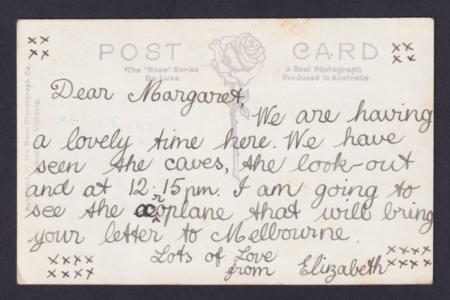 xx
xx
xx
xx
POST CARD
The "Rose" Series
De Luxe
A Real Photograph
Produced in Australia
Dear Margaret,
We are having
a lovely time here. We have
seen the caves, the look-out
and at 12.15pm. I am going to
see the aeroplane that will bring
your letter to Melbourne.
Lots of Love
from Elizabeth
xxxx
xxxx
xxxx
xxxx